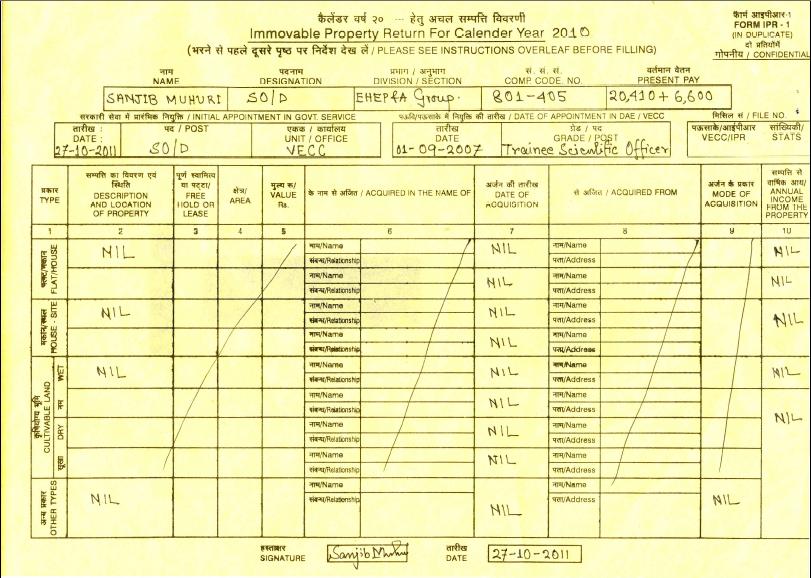 कैलेंडर वर्ष २० --- हेतु अचल सम्पत्ति विवरणी
Immovable Property Return For Calender Year 2010
(भरने से पहले दूसरे पृष्ठ पर निर्देश देख लें / PLEASE SEE INSTRUCTIONS OVERLEAF BEFORE FILLING)
फॅार्म आइपीआर-1
FORM IPR - 1
(IN DUPLICATE)
दो प्रतियोंमें
गोपनीय / CONFIDENTIAL
नाम पदनाम प्रभाग / अनुभाग सं. सं. सं. वर्तमान वेतन
NAME DESIGNATION DIVISION / SECTION COMP. CODE. NO. PRESENT PAY
SANJIB MUHURI SO/D EHEP&A Group. 801-405 20,410 + 6,600
सरकारी सेवा में प्रारंमिक नियुक्ति / INITIAL APPOINTMENT IN GOVT. SERVICE
में नियुक्ति की तारीख / DATE OF APPOINTMENT IN DAE / VECC
मिसिल सं / FILE NO.
तारीख : पद / POST एकक / कार्यालय तारीख ग्रेड / पद पऊसाके/आईपीआर सांख्यिकी/
DATE : UNIT / OFFICE DATE GRADE / POST VECC/IPR STATS
27-10-2011 SO/D VECC 01-09-2007 Trainee Scientific Officer
प्रकार
TYPE
सम्पत्ति का विवरण एवं
स्थिति
DESCRIPTION
AND LOCATION
OF PROPERTY
पूर्ण स्वामित्व
या पट्टा/
FREE
HOLD OR
LEASE
क्षेत्र/
AREA
मूल्य रू/
VALUE
Rs.
के नाम से अर्जित / ACQUIRED IN THE NAME OF
अर्जन की तारीख
DATE OF
ACQUISITION
से अर्जित / ACQUIRED FROM
अर्जन के प्रकार
MODE OF
ACQUISITION
सम्पत्ति से
वार्षिक आय/
ANNUAL
INCOME
FROM THE
PROPERTY
1 2 3 4 5 6 7 8 9 10
फ्लैट/मकान
FLAT/HOUSE
NIL नाम/Name NIL नाम/Name NIL
संबन्ध/Relationship पता/Address
नाम/Name NIL नाम/Name NIL
संबन्ध/Relationship पता/Address
मकान/स्थल
HOUSE - SITE
NIL नाम/Name NIL नाम/Name NIL
संबन्ध/Relationship पता/Address
नाम/Name NIL नाम/Name
संबन्ध/Relationship पता/Address
कृषियोग्य भूमि
CULTIVABLE LAND
WET
नम
DRY
सूखा
NIL नाम/Name NIL नाम/Name NIL
संबन्ध/Relationship पता/Address
नाम/Name NIL नाम/Name NIL
संबन्ध/Relationship पता/Address
नाम/Name NIL नाम/Name
संबन्ध/Relationship पता/Address
नाम/Name NIL नाम/Name
संबन्ध/Relationship पता/Address
अन्य प्रकार
OTHER TYPES
NIL नाम/Name NIL नाम/Name NIL
संबन्ध/Relationship पता/Address
हस्ताक्षर तारीख
SIGNATURE Sanjib Muhuri DATE 27-10-2011